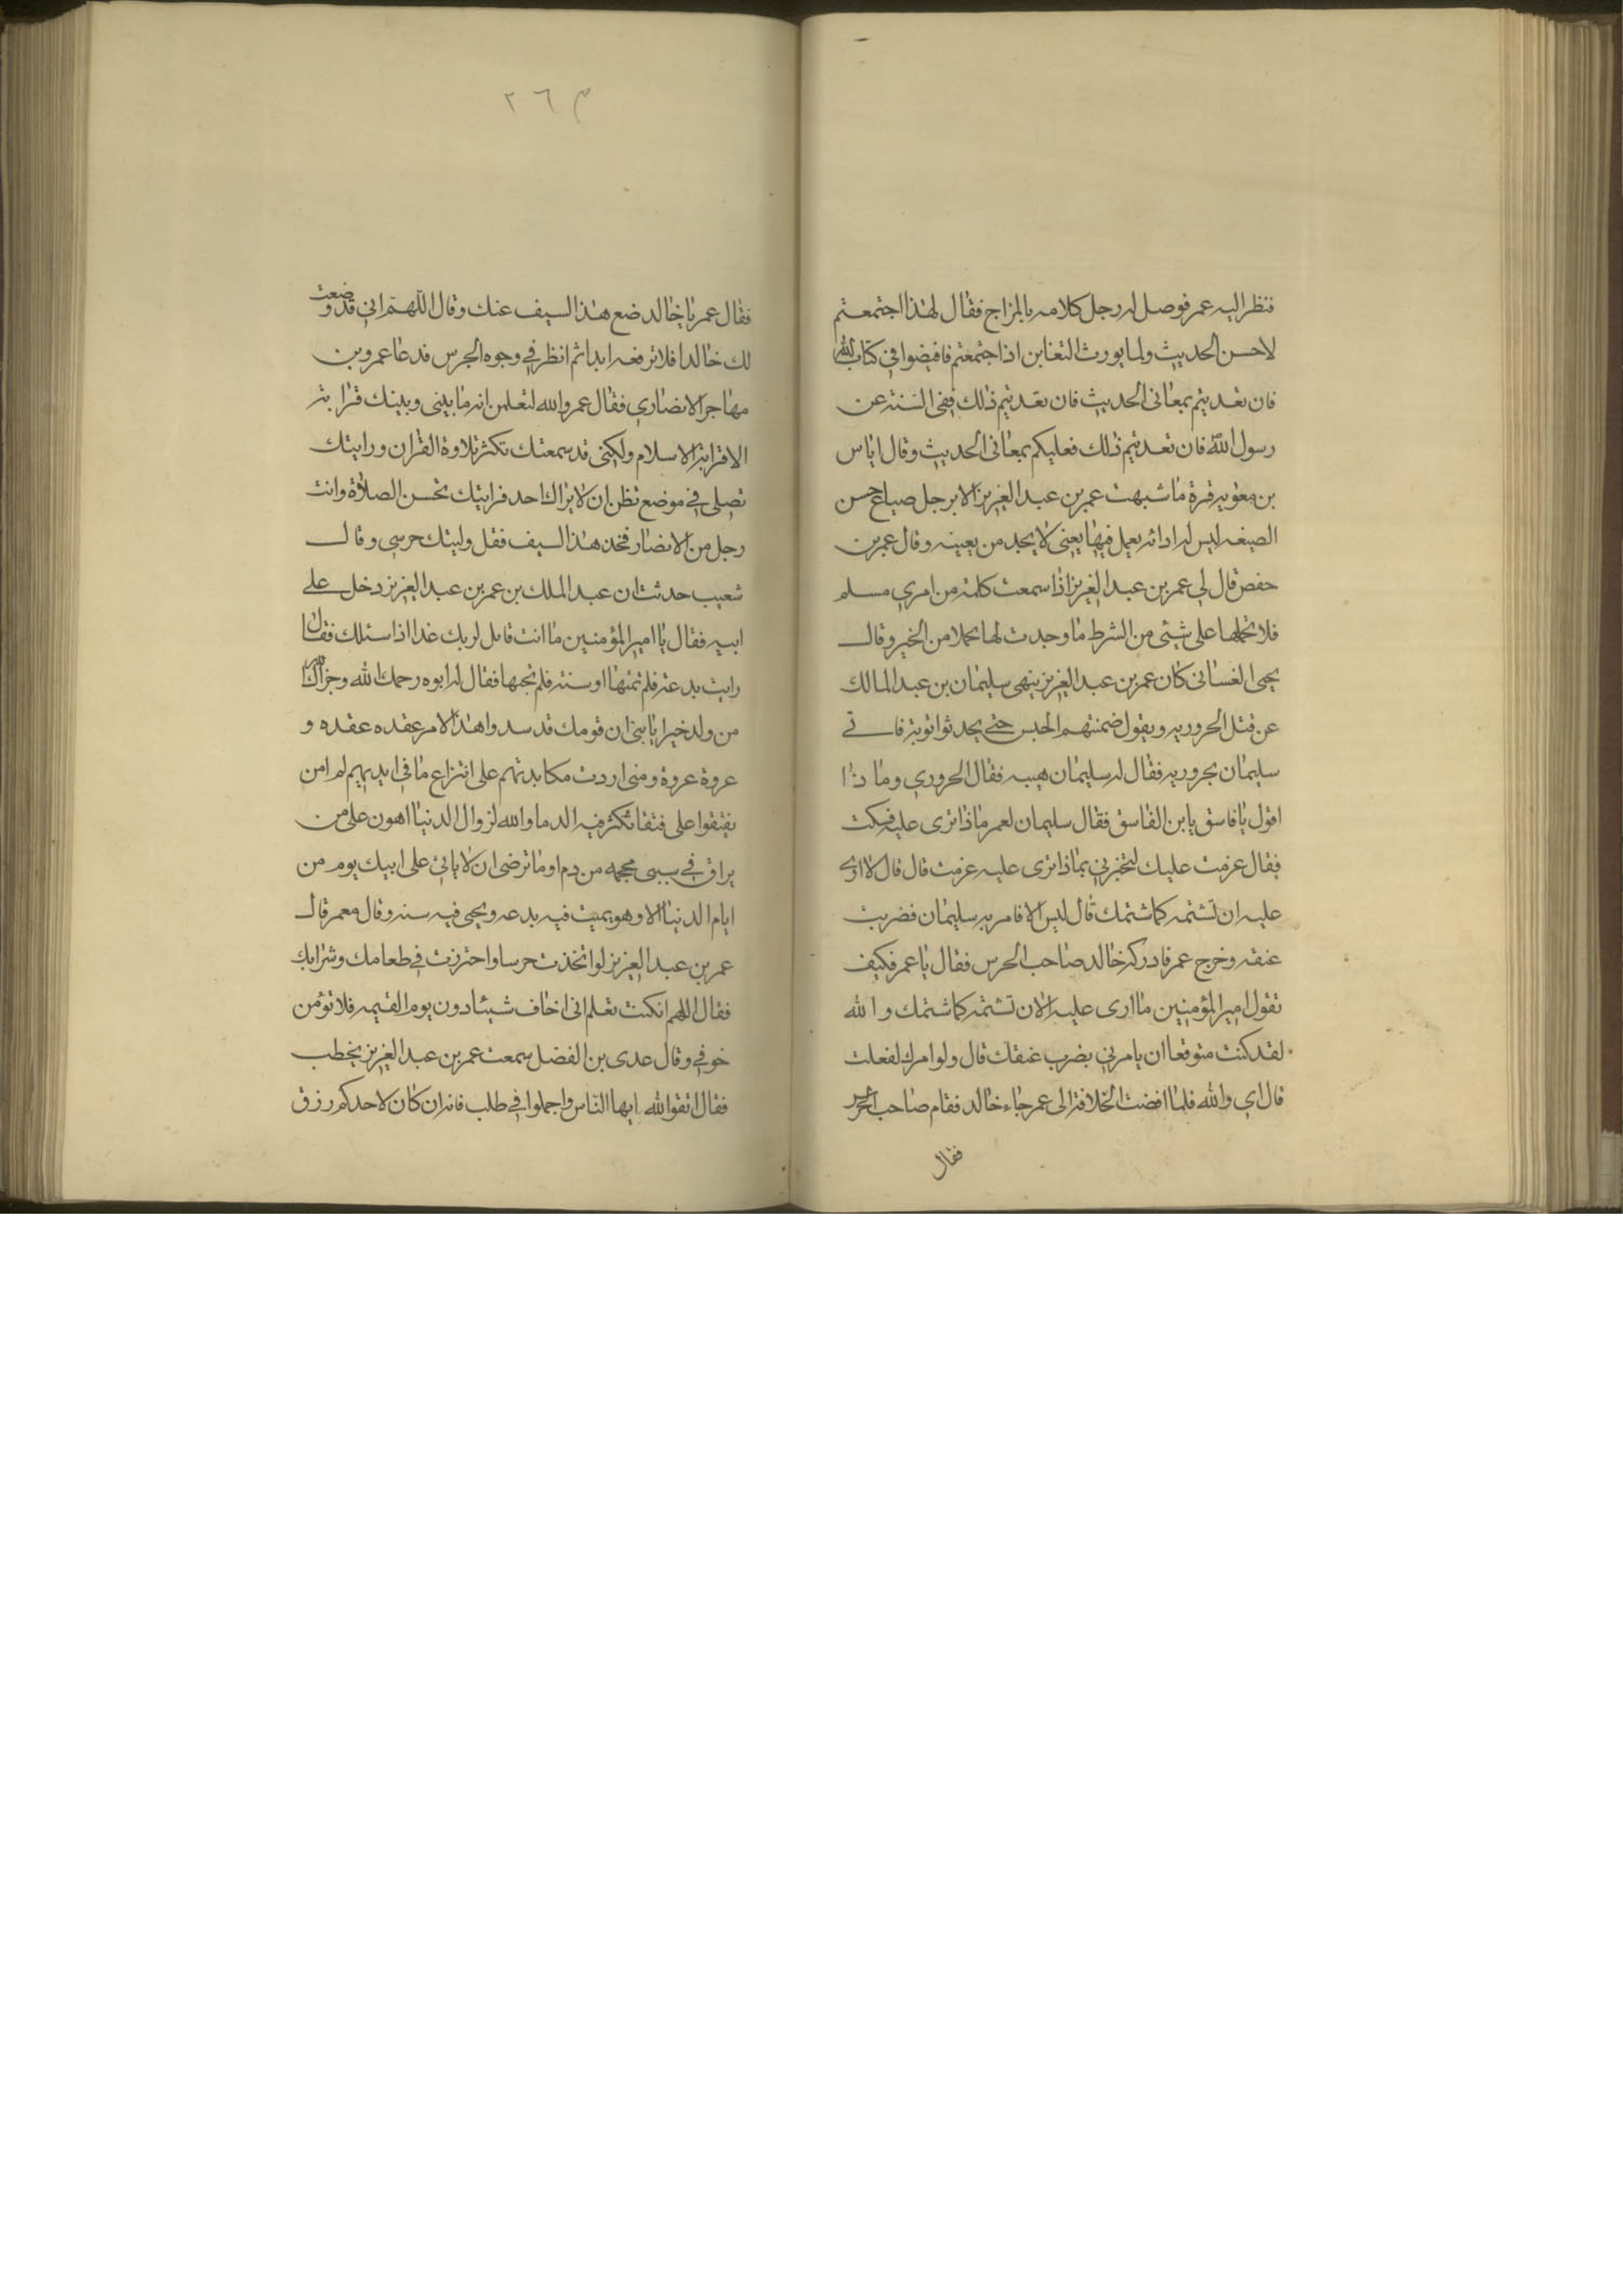 فنظر اليه عمر فوصل له رجل كلامه بالمزاح فقال لهذا اجتمعتم
لاحسن الحديث ولما يورث التغابن اذا اجتمعتم فافيضوا في كتاب الله
فان تعديتم بمعاني الحديث فان تعديتم ذلك ففي السنة عن
رسول الله فان تعديتم ذلك فعليكم بمعاني الحديث وقال اياس
بن معوية قرة ما شبهت عمر بن عبد العزيز الا برجل صباغ حسن
الصبغه ليس له اداته يعمل فيها يعني لا يجد من يعينه وقال عمر بن
حفص قال لي عمر بن عبد العزيز اذا سمعت كلمة من امري مسلم
فلا تحملها على شئي من الشرط ما وجدت لها محملا من الخير وقال
يحيى الغساني كان عمر بن عبد العزيز ينهى سليمان بن عبد المالك
عن قتل الحروريه ويقول ضمنتهم الحبس حتى يحدثوا توبة فاتي
سليمان بحروريه فقال له سليمان هيه فقال الحروري وما ذا
اقول يا فاسق يا بن الفاسق فقال سليمان لعمر ماذا ترى عليه فسكت
فقال عزمت عليك لتخبرني بماذا ترى عليه عزمت قال قال لا اري
عليه ان تشتمه كما شتمك قال ليس الا فامر به سليمان فضربت
عنقه وخرج عمر فادركه خالد صاحب الحرس فقال يا عمر فكيف
تقول امير المؤمنين ما ارى عليه الا ان تشتمه كما شتمك والله
لقد كنت متوقعا ان يامرني بضرب عنقك قال ولو امرك لفعلت
قال اي والله فلما افضت الخلافة الى عمر جاء خالد فقام صاحب الحرس
فقال
٢٦٣
فقال عمر يا خالد ضع هذا السيف عنك وقال اللهم اني قد وضعت
لك خالدا فلا ترفعه ابدا ثم انظر في وجوه الحرس فدعا عمرو بن
مهاجر الانصاري فقال عمر والله لتعلمن انه ما بيني وبينك قرابة
الا قرابة الاسلام ولكني قد سمعتك تكثر تلاوة القران ورايتك
تصلي في موضع تظن ان لا يراك احد فرايتك تحسن الصلاة وانت
رجل من الانصار فخذ هذا السيف فقل وليتك حرسي وقال
شعيب حدثت ان عبد الملك بن عمر بن عبد العزيز دخل على
ابيه فقال يا امير المؤمنين ما انت قايل لربك غدا اذا سئلك فقال
رايت بدعة فلم تمتها او سنة فلم تحيها فقال له ابوه رحمك الله وجزاك الله
من ولد خيرا يا بني ان قومك قد سدوا هذا الامر عقده عقده و
عروة عروة ومتى اردت مكابدتهم على انتزاع ما في ايديهم لم امن
يفتقوا على فتقا تكثر فيه الدما والله لزوال الدنيا اهون علي من
يراق في سببي محجمه من دم اوما ترضى ان لا ياتي على ابيك يوم من
ايام الدنيا الا وهو يميت فيه بدعه ويحيى فيه سنه وقال معمر قال
عمر بن عبد العزيز لو اتخذت حرسا واحترزت في طعامك وشرابك
فقال اللهم ان كنت تعلم اني اخاف شيئا دون يوم القيمه فلا تؤمن
خوفي وقال عدى بن الفضل سمعت عمر بن عبد العزيز يخطب
فقال اتقوا الله ايها الناس واجملوا في طلب فانه ان كان لاحدكم رزق